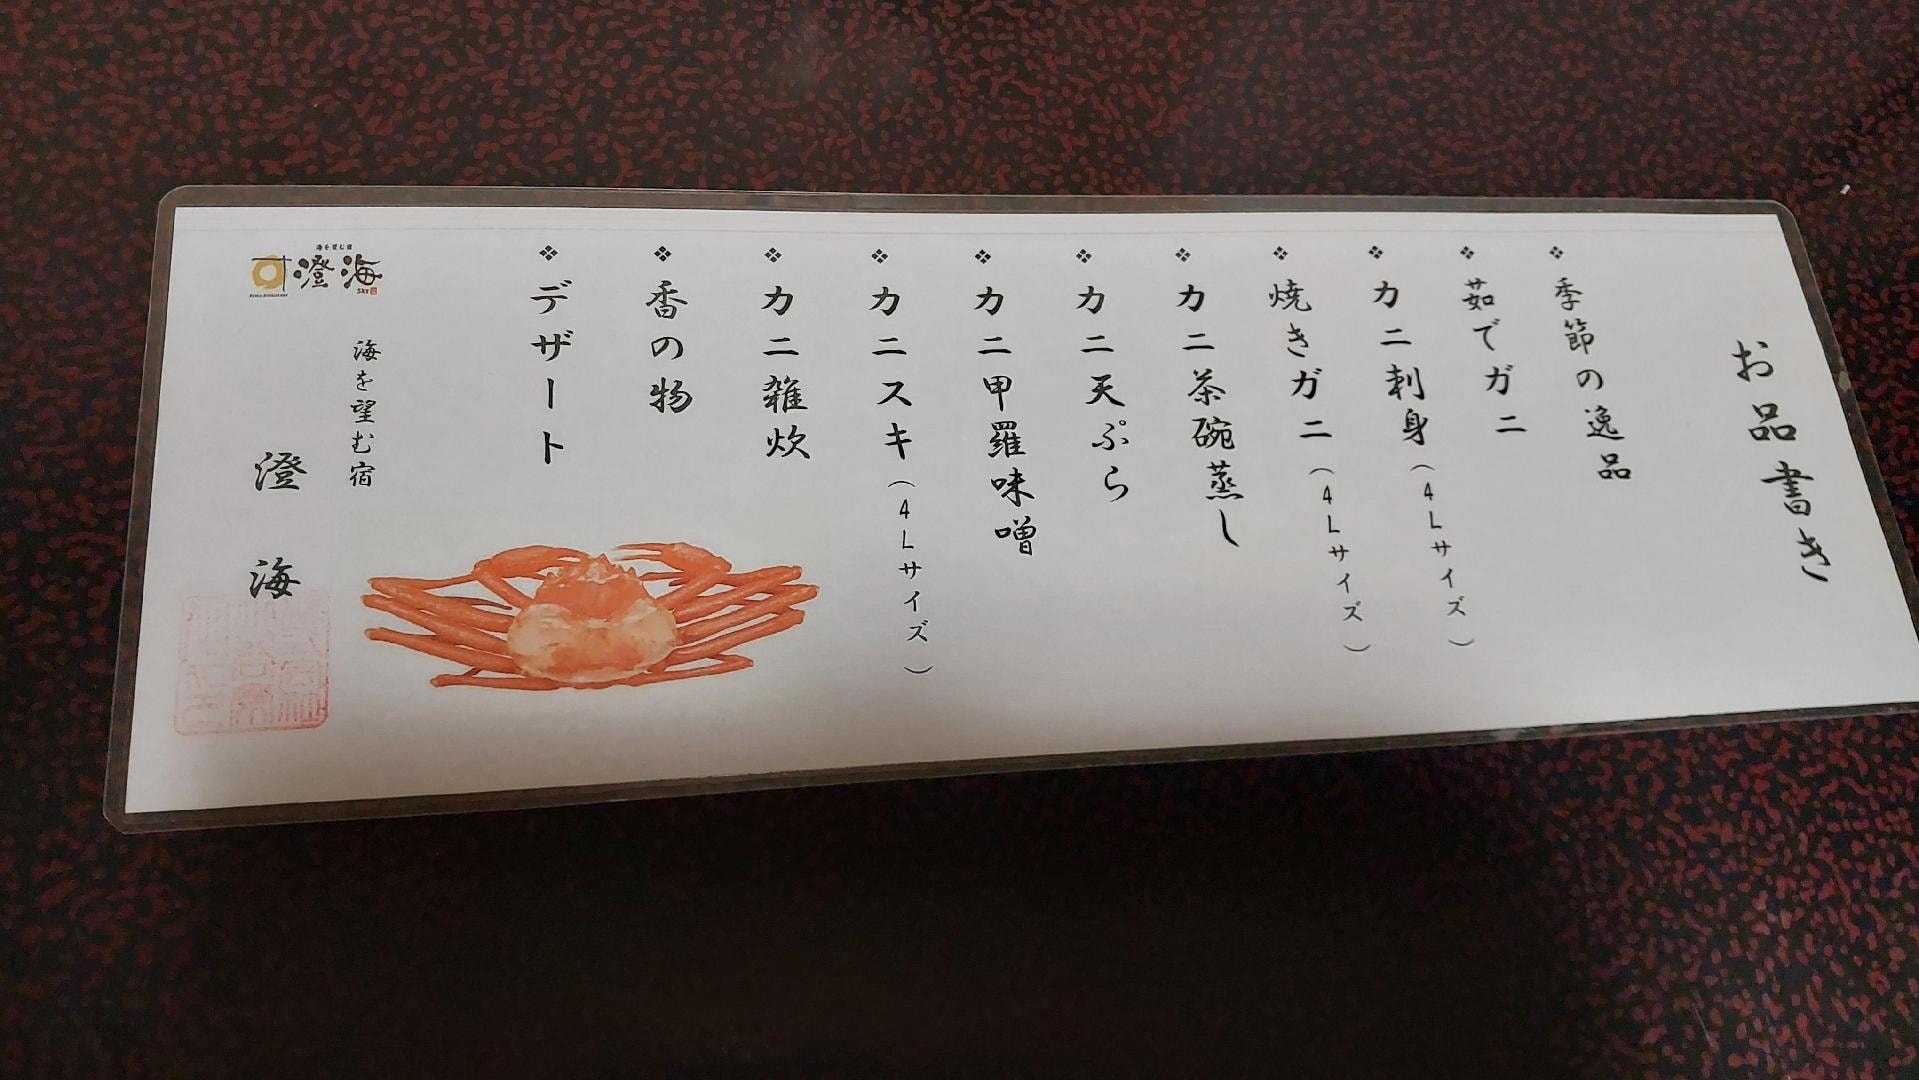 お品書き
❖季節の逸品
❖茹でガニ
❖カニ刺身（4Lサイズ）
❖焼きガニ（4Lサイズ）
❖カニ茶碗蒸し
❖カニ天ぷら
❖カニ甲羅味噌
❖カニスキ（4Lサイズ）
❖カニ雑炊
❖香の物
❖デザート
海を望む宿
澄海
海を望む宿
澄海
SKY